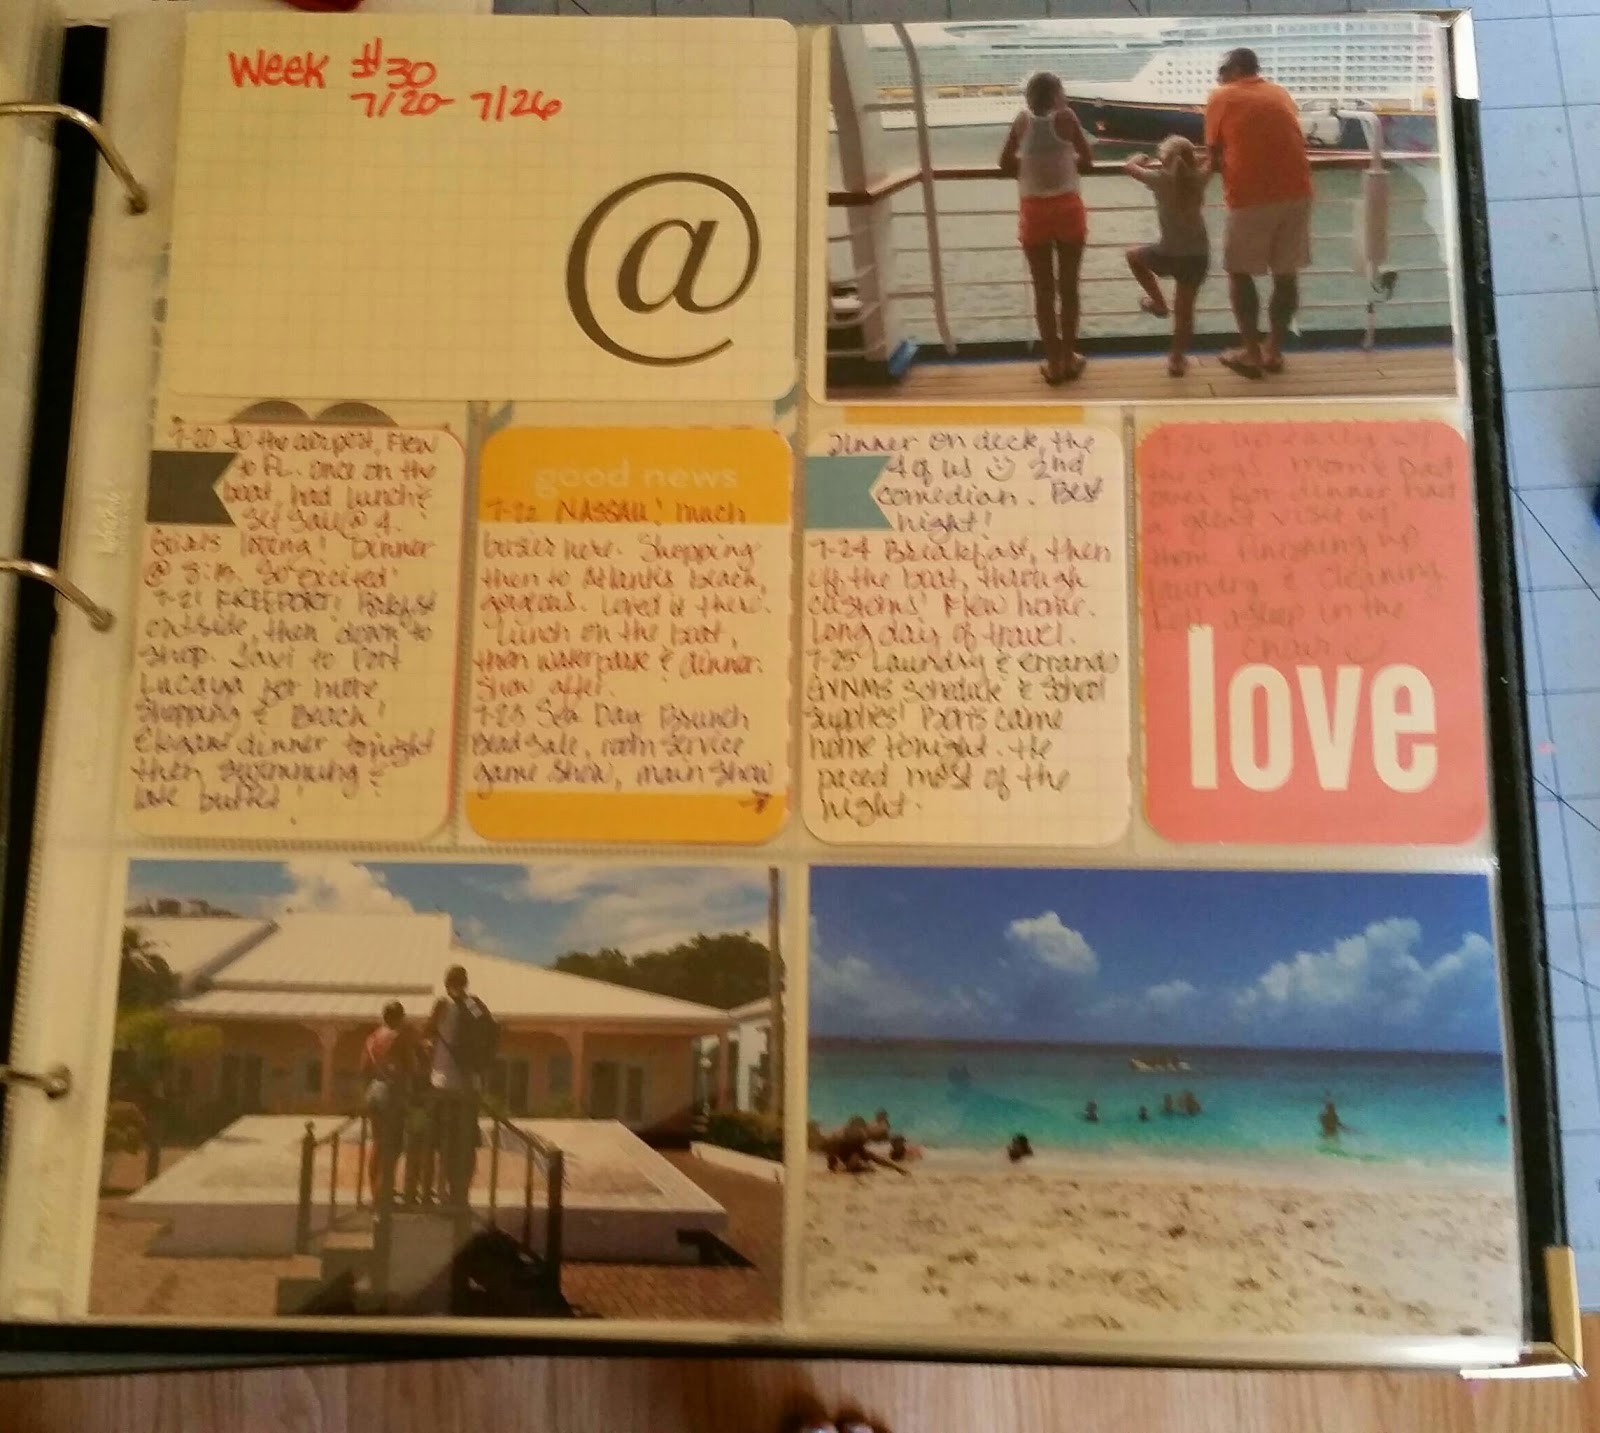 Week #30
7/20- 7/26
@
7-20 To the airport, Flew
to FL. Once on the
boat, had lunch &
set sail @ 4.
Girls loving! Dinner
@ 8:15. So excited!
7-21 FREEPORT!
outside, then down to
shop. Taxi to Port
Lucaya for more
Shopping & Beach!
Elegant dinner tonight
then swimming &
late buffet!
good news
7-22 NASSAU! Much
busier here. Shopping
then to Atlantis beach,
gorgeous. Loved it there.
Lunch on the boat,
then waterpark & dinner.
Show after.
7-23 Sea Day Brunch
Bead Sale, room service
game show, main show
→
Dinner on deck, the
4 of us ☺ 2nd
comedian. Best
night!
7-24 Breakfast, then
off the boat, through
customs! Flew home.
Long day of travel.
7-25 Laundry & errands
GVNMS Schedule & School
supplies! Boris came
home tonight. He
paced most of the
night.
7-26 Up early w/
the dogs. Mom & Dad
over for dinner had
a great visit w/
them. Finishing up
laundry & cleaning.
Fell asleep in the
chair ☺
love